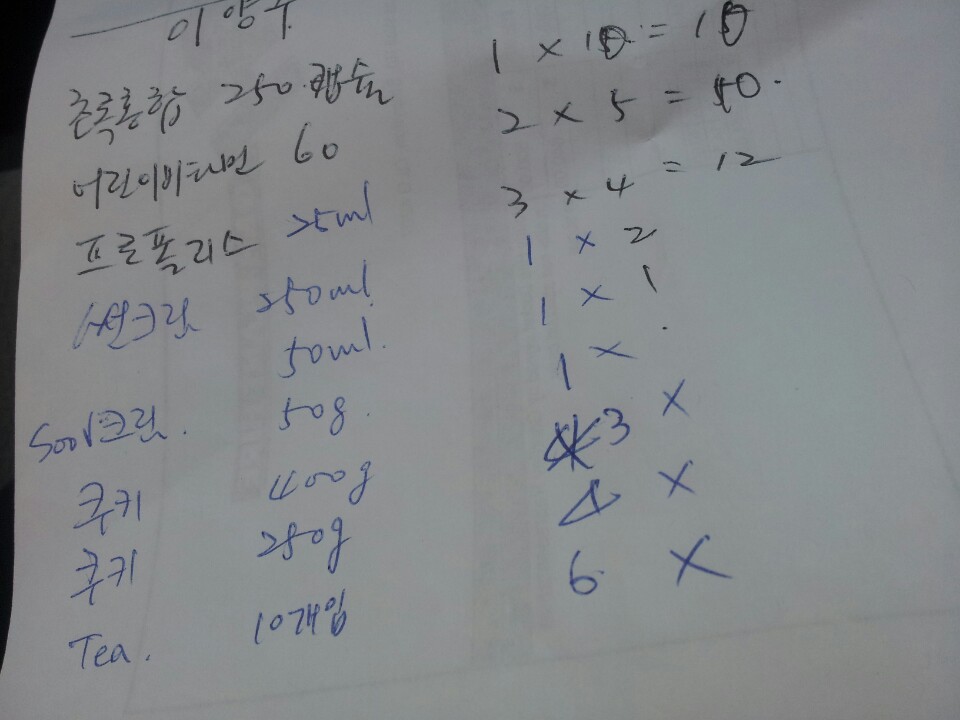 이영주
초록홍합 250 캡슐 1 × 10 = 10
어린이비타민 60 2 × 5 = 10.
프로폴리스 25ml 3 × 4 = 12
썬크림 250ml 1 × 2
50ml. 1 × 1
크림. 50g. 1 ×
쿠키 400g 3 ×
쿠키 250g 4 ×
Tea. 10개입 6 ×